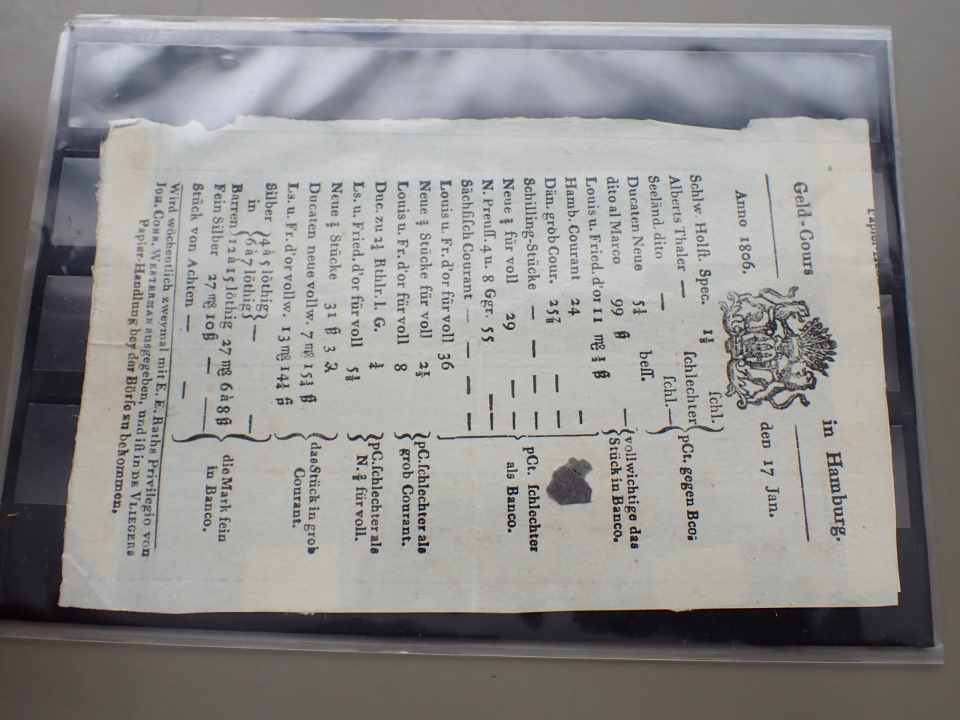 Geld-Cours in Hamburg.
Anno 1806. den 17 Jan.
Schlw. Holst. Spec. 1⅜ schl.
Alberts Thaler — schlechter
Seeländ. dito — schl. — pCt. gegen Bco;
Ducaten Neue 5¼ bess.
dito al Marco 99 ß — vollwichtige das
Louis u. Fried. d'or 11 m͟g ¼ ß Stück in Banco.
Hamb. Courant 24 —
Dän. grob Cour. 25⅞ —
Schilling-Stücke — — — pCt. schlechter
Neue ⅔ für voll 29 — — als Banco.
N. Preuss. 4 u. 8 Ggr. 55 —
Sächsisch Courant — — — —
Louis u. Fr. d'or für voll 36
Neue ⅔ Stücke für voll 2½ pC. schlechter als
Louis u. Fr. d'or für voll 8 grob Courant.
Duc. zu 2¾ Rthlr. l. G. ¼ pC. schlechter als
Ls. u. Fried. d'or für voll 5⅛ N. ⅔ für voll.
Neue ⅔ Stücke 31 ß 3 ₰
Ducaten neue vollw. 7 m͟g 15¼ ß das Stück in grob
Ls. u. Fr. d'or vollw. 13 m͟g 14½ ß Courant.
Silber 4 à 5 löthig
in — —
Barren 6 à 7 löthig
12 à 15 löthig 27 m͟g 6 à 8 ß die Mark fein
Fein Silber 27 m͟g 10 ß — in Banco.
Stück von Achten — — —
Wird wöchentlich zweymal mit E. E. Raths Privilegio von
Joh. Conr. Westerman ausgegeben, und ist in de Vliegers
Papier-Handlung bey der Börse zu bekommen.